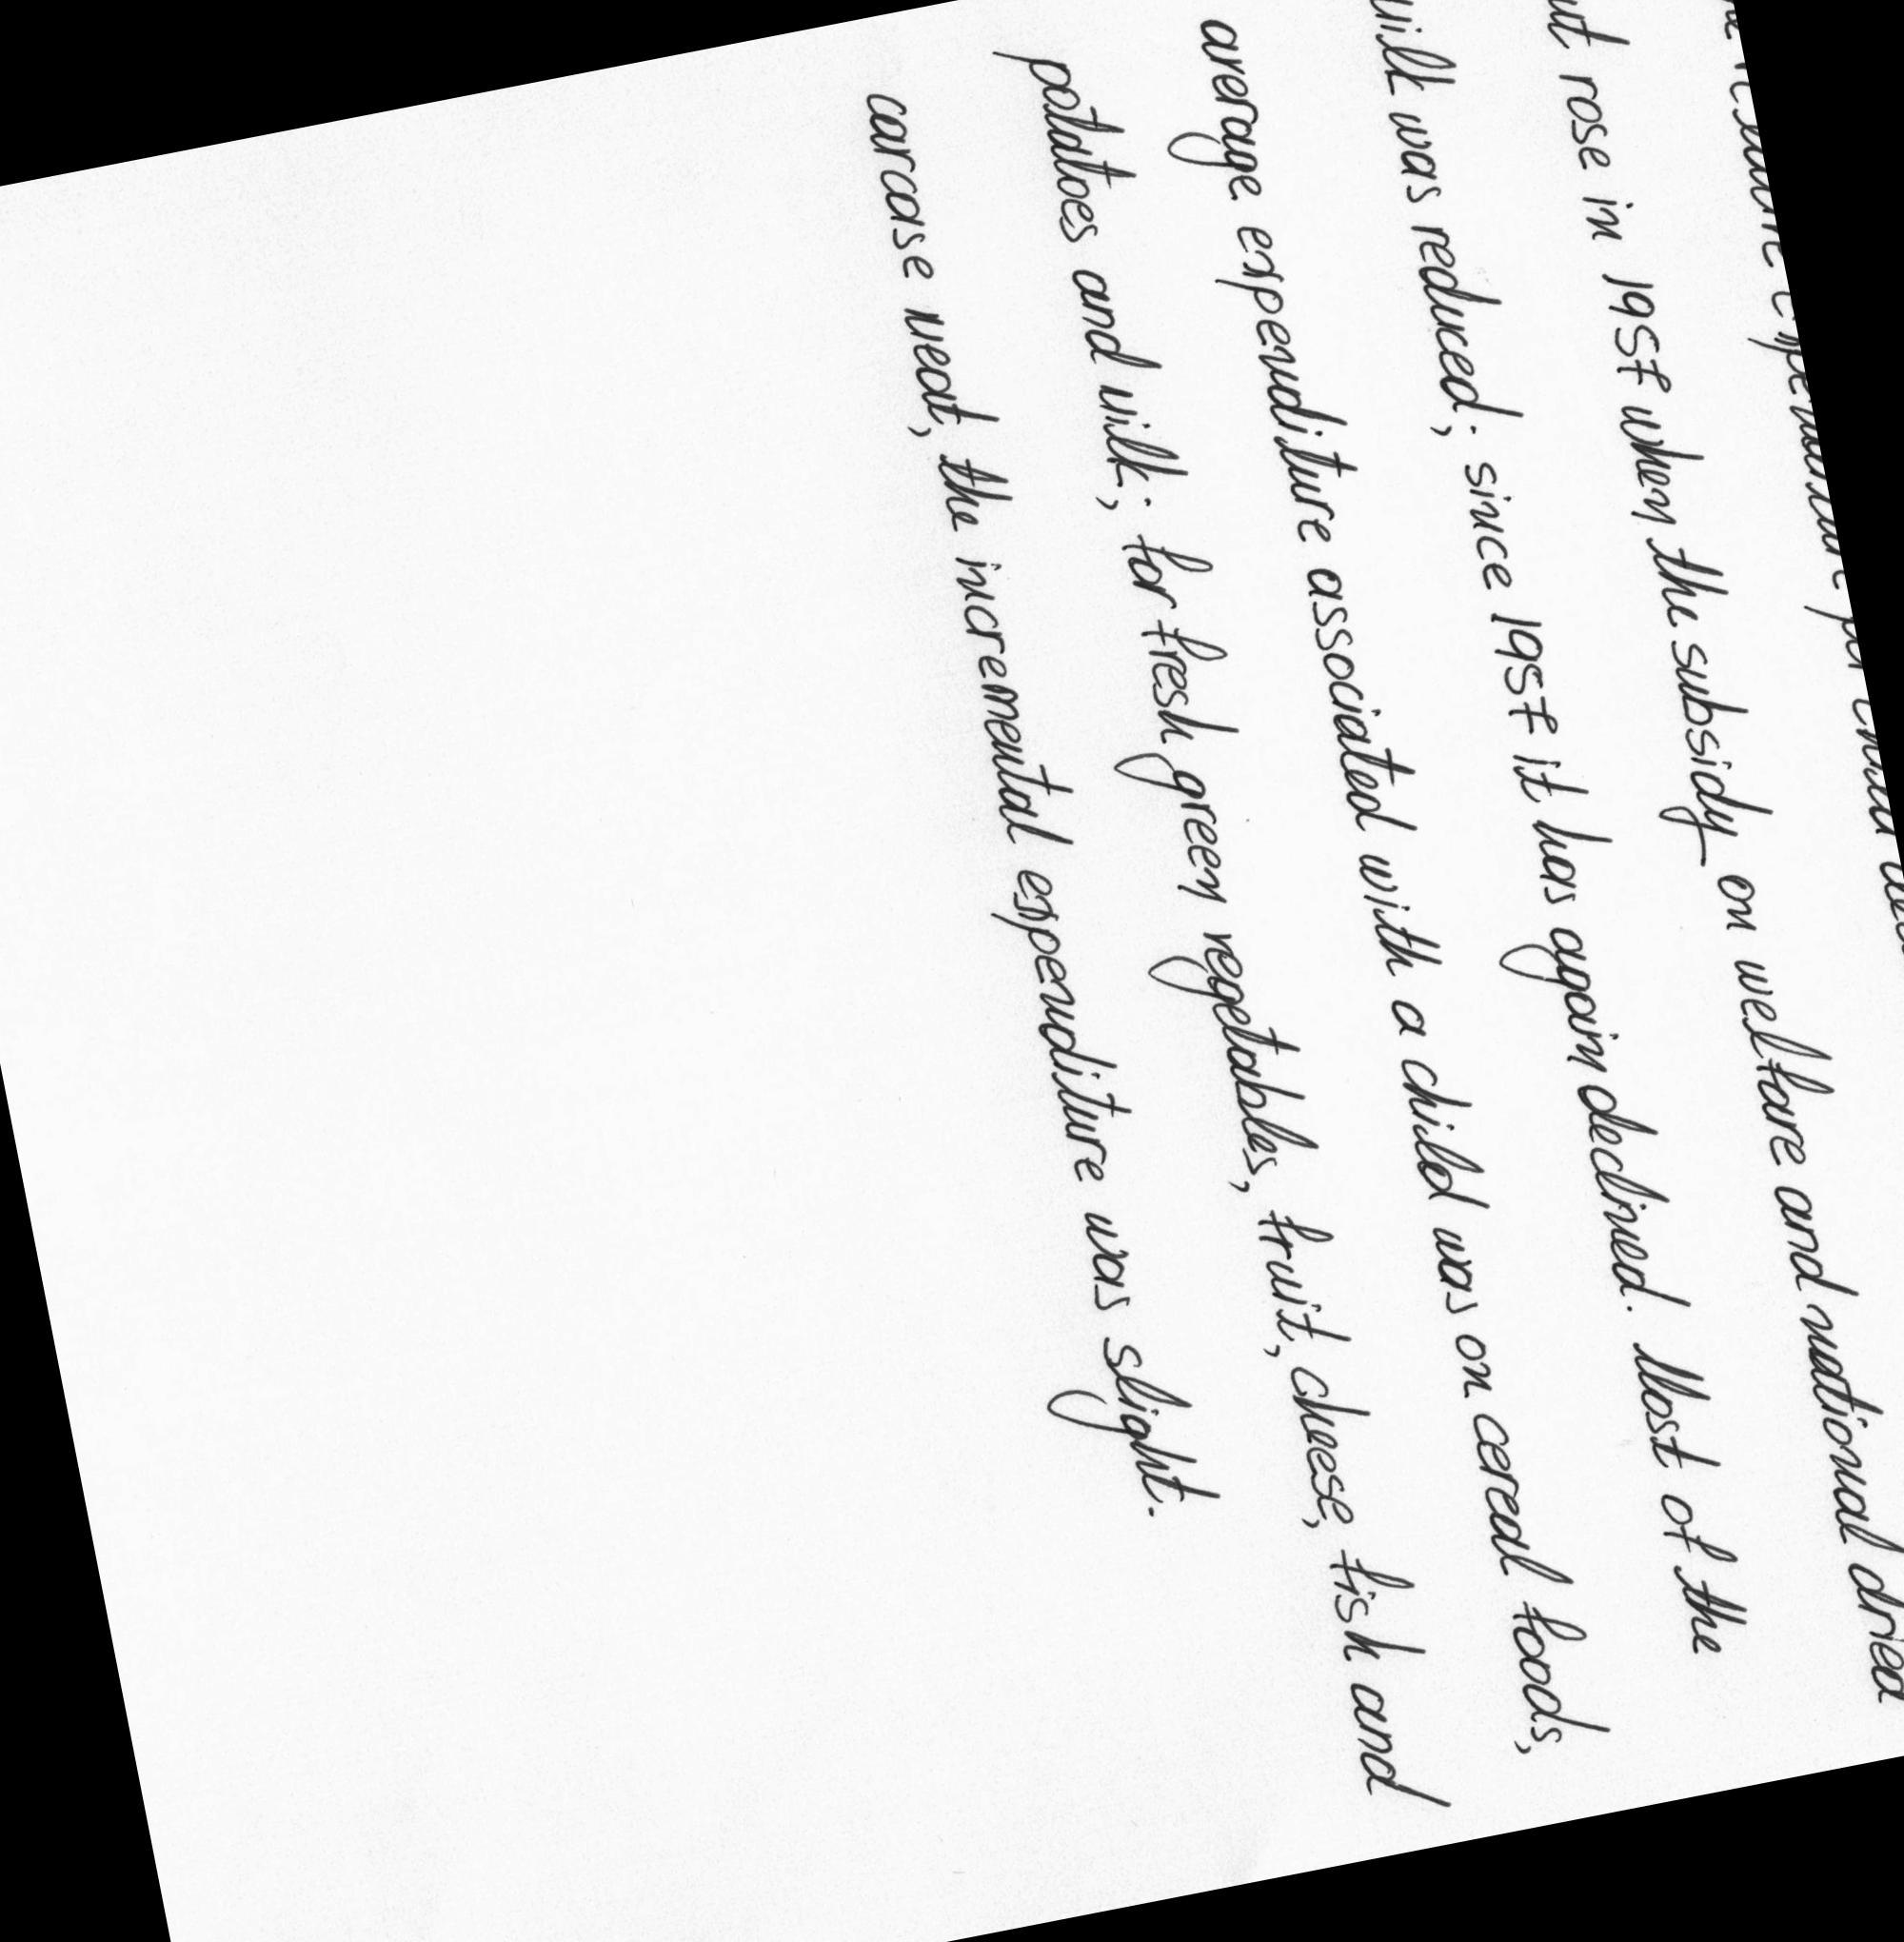 rose in 1957 when the subsidy on welfare and national dried
milk was reduced; since 1957 it has again declined. Most of the
average expenditure associated with a child was on cereal foods,
potatoes and milk; for fresh green vegetables, fruit, cheese, fish and
carcase meat, the incremental expenditure was slight.